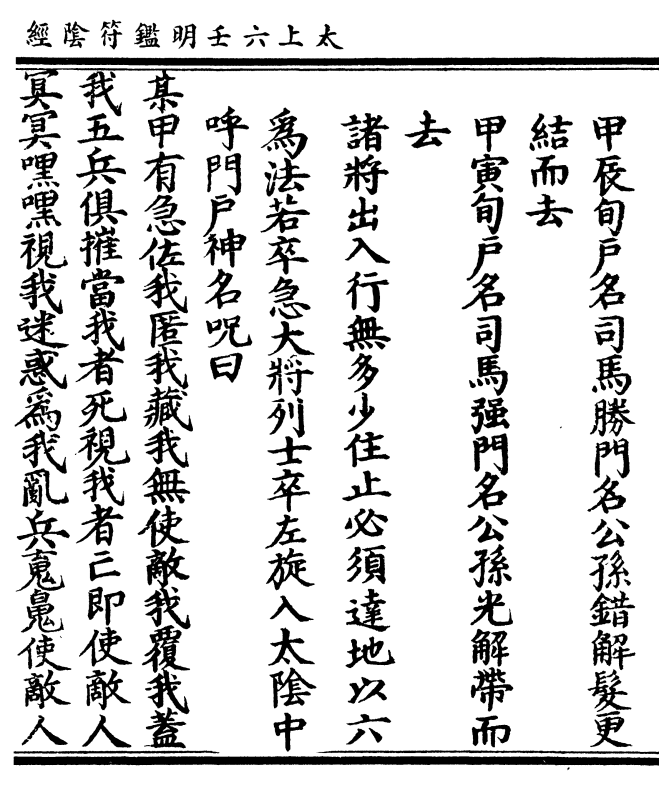 太上六壬明鑑符陰經
甲辰旬戶名司馬勝門名公孫錯解髮更
結而去
甲寅旬戶名司馬强門名公孫光解帶而
去
諸將出入行無多少住止必須達地以六
爲法若卒急大將列士卒左旋入太陰中
呼門戶神名呪曰
某甲有急佐我匿我藏我無使敵我覆我蓋
我五兵俱摧當我者死視我者亡即使敵人
冥冥嘿嘿視我迷惑爲我亂兵䰟䰟使敵人